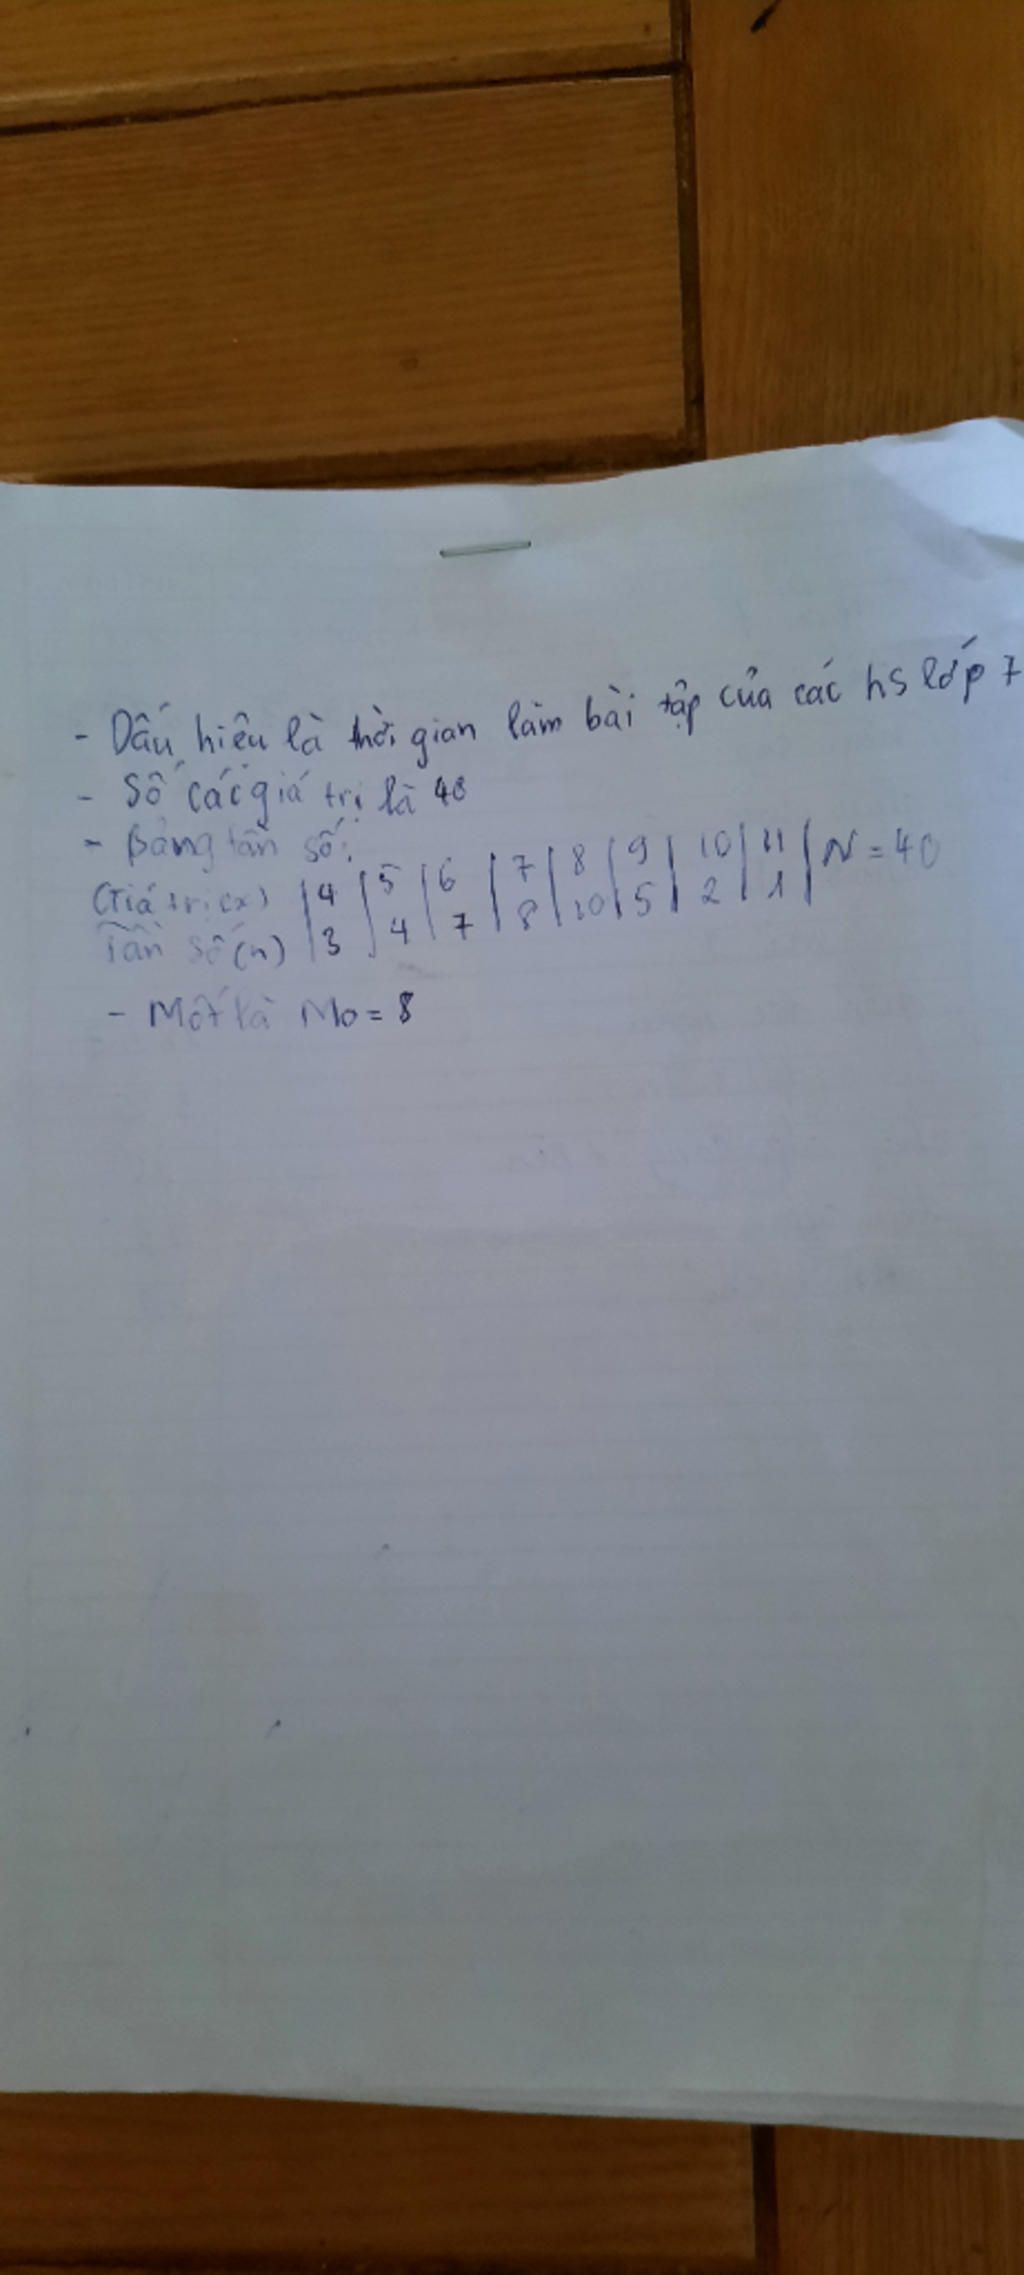 - Dấu hiệu là thời gian làm bài tập của các hs lớp 7
- Số các giá trị là 40
- Bảng tần số:
Giá trị (x) | 4 | 5 | 6 | 7 | 8 | 9 | 10 | 11 | N = 40
Tần số (n) | 3 | 4 | 7 | 8 | 10 | 5 | 2 | 1 |
- Mốt là Mo = 8